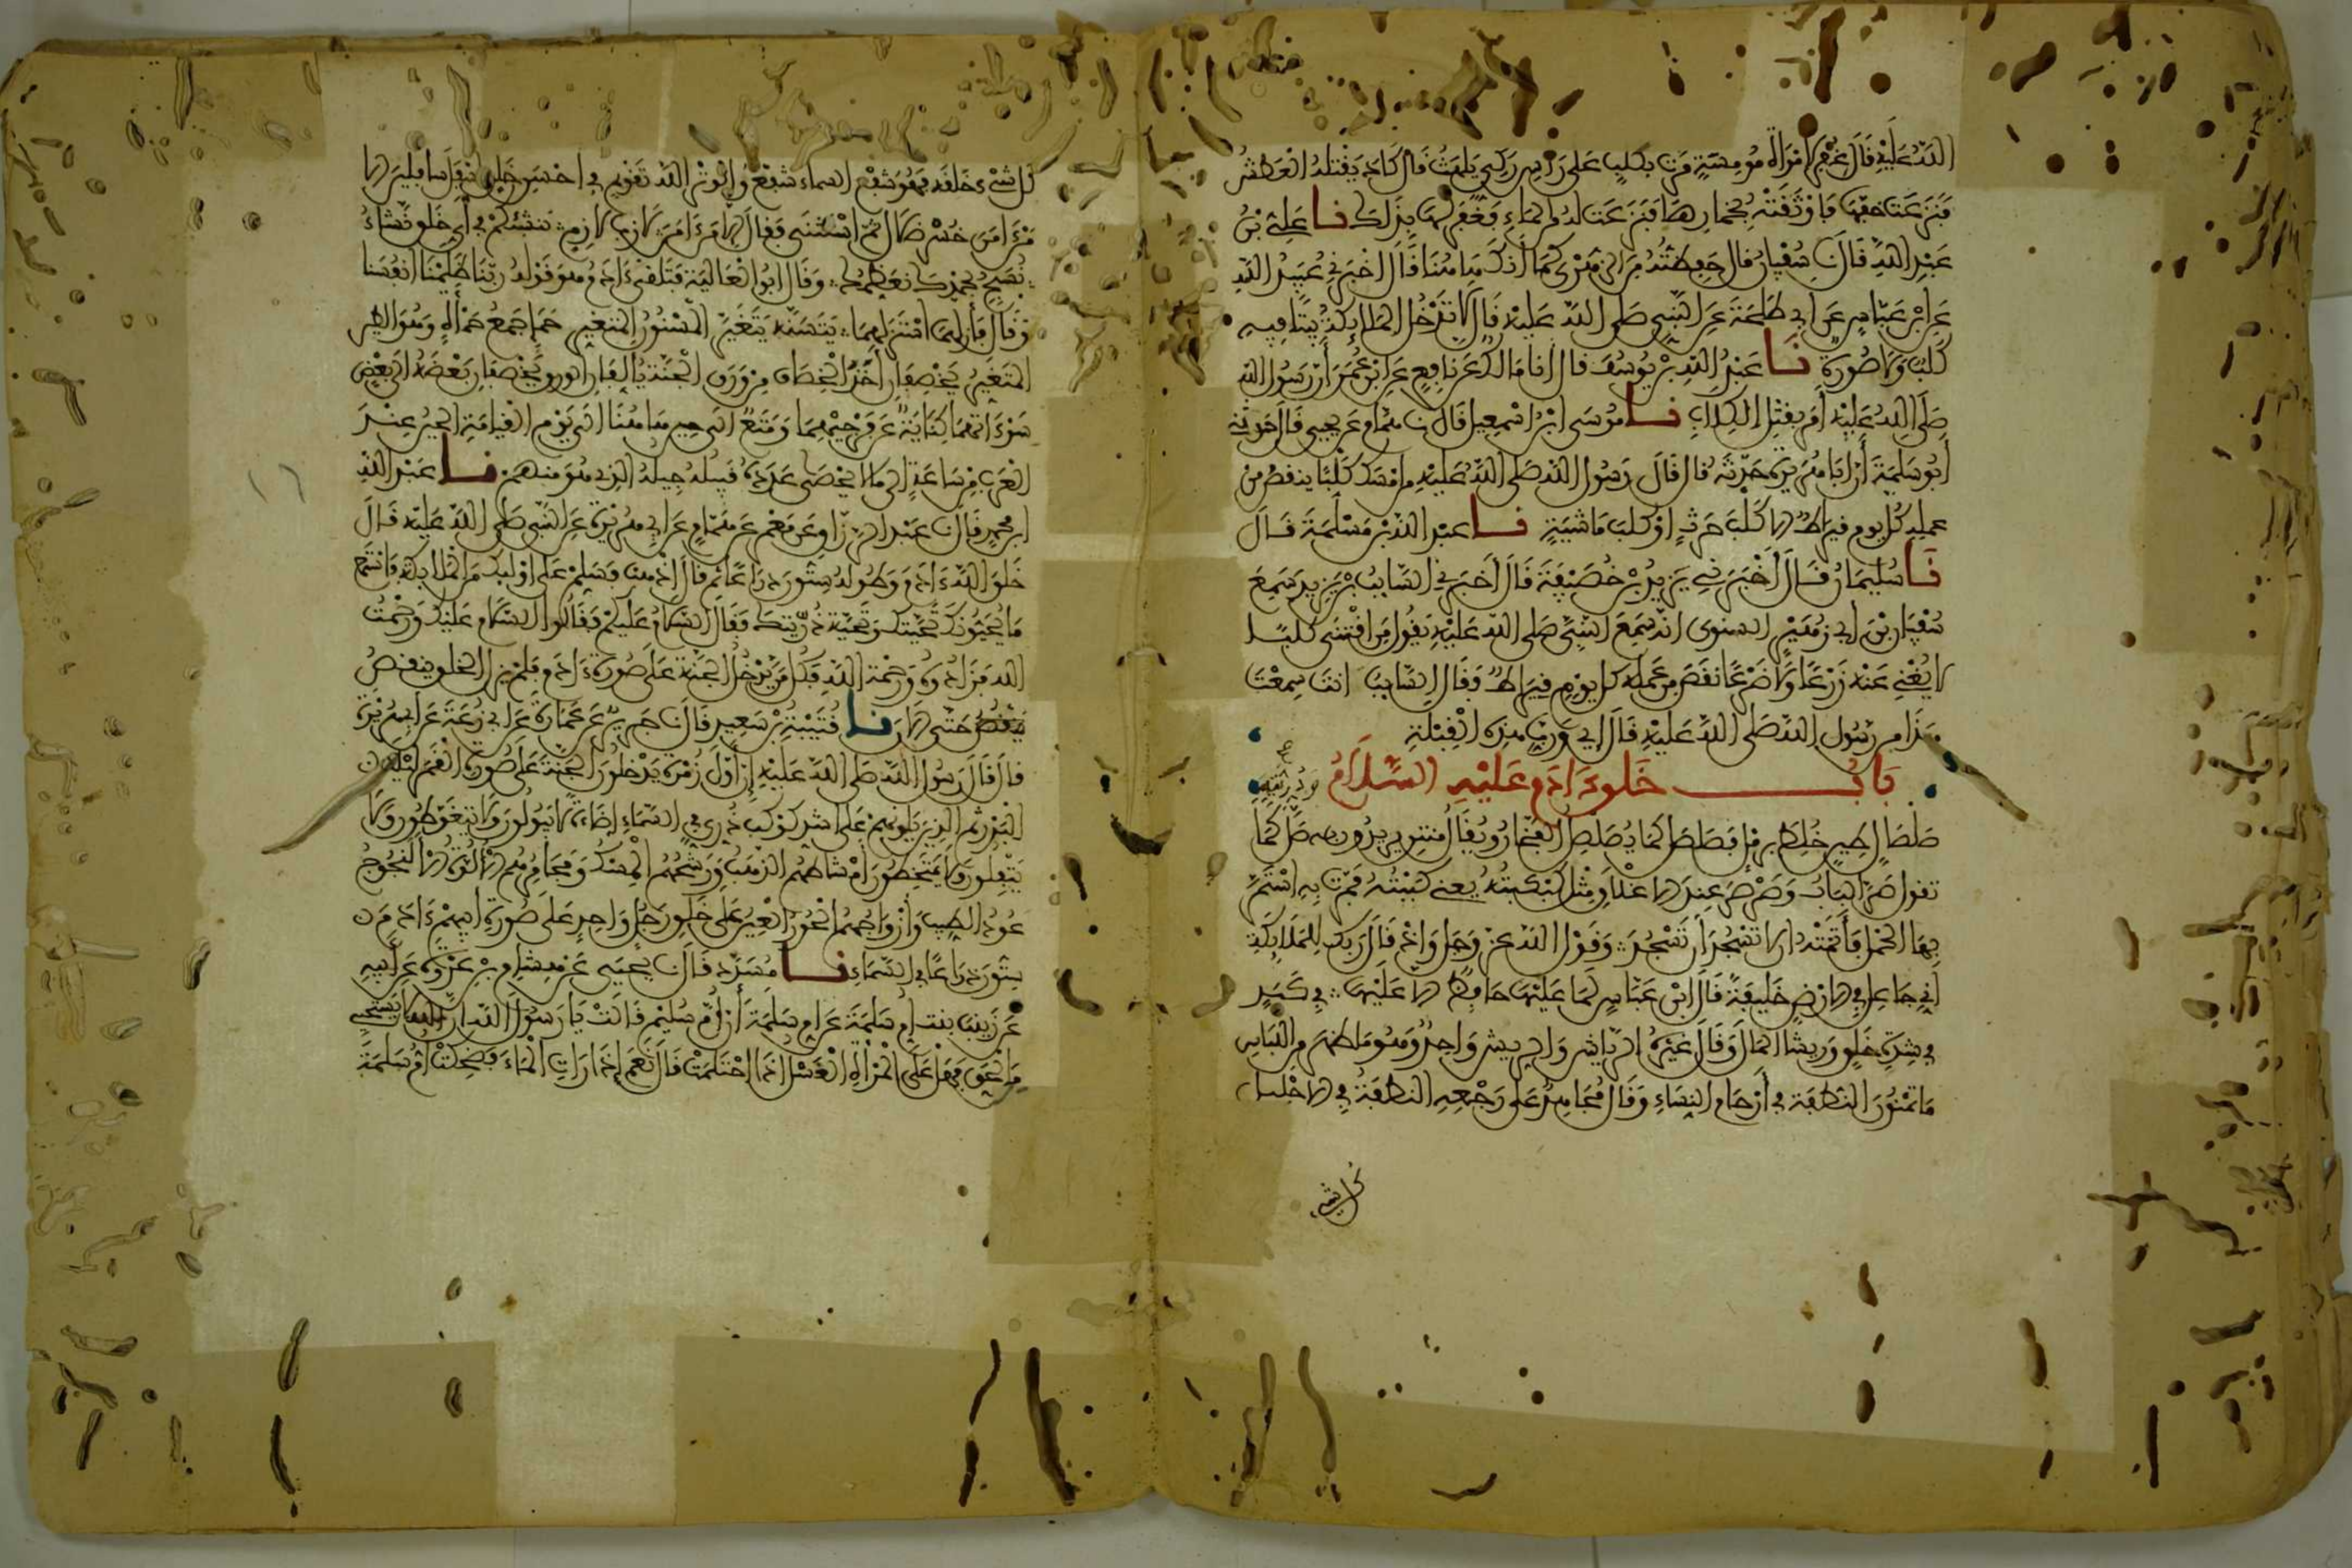 الله عليه قال غفر لامرأة مومسة مرت بكلب على رأس ركي يلهث قال كاد يقتله العطش
فنزعت خفها فاوثقته بخمارها فنزعت له من الماء فغفر لها بذلك نا علي بن
عبد الله قال نا سفيان قال حفظته من الزهري كما أنك هاهنا قال اخبرني عبيد الله
عن ابن عباس عن ابي طلحة عن النبي صلى الله عليه قال لا تدخل الملائكة بيتا فيه
كلب ولا صورة نا عبد الله بن يوسف قال انا مالك عن نافع عن ابن عمر أن رسول الله
صلى الله عليه أمر بقتل الكلاب نا موسى ابن اسمعيل قال نا همام عن يحيى قال حدثني
أبو سلمة أن أبا هريرة حدثه قال قال رسول الله صلى الله عليه من امسك كلبا ينقص من
عمله كل يوم قيراط الا كلب حرث او كلب ماشية نا عبد الله بن مسلمة قال
نا سليمان قال أخبرني يزيد بن خصيفة قال أخبرني السائب بن يزيد سمع
سفيان بن أبي زهير الشنوى انه سمع النبي صلى الله عليه يقول من اقتنى كلبا
لا يغني عنه زرعا ولا ضرعا نقص من عمله كل يوم قيراط فقال السائب انت سمعت
هذا من رسول الله صلى الله عليه قال اي ورب هذه القبلة
باب خلق ءادم عليه السلام وذريته
صلصال طين خلط برمل فصلصل كما يصلصل الفخار ويقال منتن يريدون به صل كما
تقول صر الباب وصرصر عند الاغلاق مثل كبكبته يعني كببته فمرت به استمر
بها الحمل فأتمته ان لا تسجد أن تسجد وقول الله عز وجل واذ قال ربك للملائكة
إني جاعل في الارض خليفة قال ابن عباس لما عليها حافظ الا عليها في كبد
في شدة خلق وريشا المال وقال غيره الرياش والريش واحد وهو ما ظهر من اللباس
ما تمنون النطفة في أرحام النساء وقال مجاهد على رجعه النطفة في الاحليل
كل شيء خلقه فهو شفع السماء شفع والوتر الله تقويم في احسن خلق اسفل سافلين الا
من ءامن خسر ضلال ثم استثنى فقال الا من ءامن لازب لازم ننشئكم في أي خلق نشاء
نسبح بحمدك نعظمك وقال ابو العالية فتلقى ءادم هو قوله ربنا ظلمنا انفسنا
وقال فأزلهما استزلهما يتسنه يتغير المسنون المتغير حمإ جمع حمأة وهو الطين
المتغير يخصفان أخذ الخصاف من ورق الجنة يؤلفان الورق ويخصفان بعضه الى بعض
سوءاتهما كناية عن فرجيهما ومتع الى حين هاهنا الى يوم القيامة الحين عند
العرب من ساعة الى ما لا يحصى عدده قبيله جيله الذي هو منهم نا عبد الله
ابن محمد قال نا عبد الرزاق عن معمر عن همام عن ابي هريرة عن النبي صلى الله عليه قال
خلق الله ءادم وطوله ستون ذراعا ثم قال اذهب فسلم على اولئك من الملائكة فاستمع
ما يحيونك تحيتك وتحية ذريتك فقال السلام عليكم فقالوا السلام عليك ورحمت
الله فزادوه ورحمة الله فكل من يدخل الجنة على صورة ءادم فلم يزل الخلق ينقص
حتى الان نا قتيبة بن سعيد قال نا جرير عن عمارة عن ابي زرعة عن ابي هريرة
قال قال رسول الله صلى الله عليه إن أول زمرة يدخلون الجنة على صورة القمر ليلة
البدر ثم الذين يلونهم على اشد كوكب دري في السماء إضاءة لا يبولون ولا يتغوطون ولا
يتفلون ولا يمتخطون امشاطهم الذهب ورشحهم المسك ومجامرهم الالوة الانجوج
عود الطيب وأزواجهم الحور العين على خلق رجل واحد على صورة أبيهم ءادم
ستون ذراعا في السماء نا مسدد قال نا يحيى عن هشام بن عروة عن أبيه
عن زينب بنت ام سلمة عن ام سلمة أن ام سليم قالت يا رسول الله ان الله لا يستحيي
من الحق فهل على المرأة الغسل اذا احتلمت قال نعم إذا رأت الماء فضحكت ام سلمة